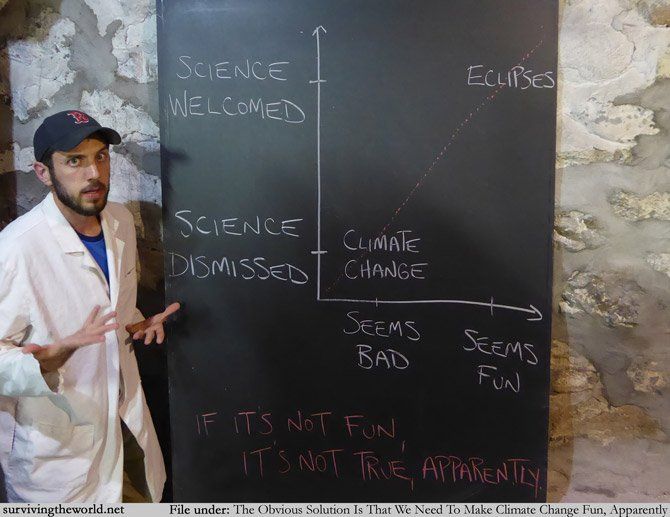 SCIENCE
WELCOMED
ECLIPSES
SCIENCE
DISMISSED
CLIMATE
CHANGE
SEEMS
BAD
SEEMS
FUN
IF IT'S NOT FUN,
IT'S NOT TRUE, APPARENTLY.
B
survivingtheworld.net
File under: The Obvious Solution Is That We Need To Make Climate Change Fun, Apparently